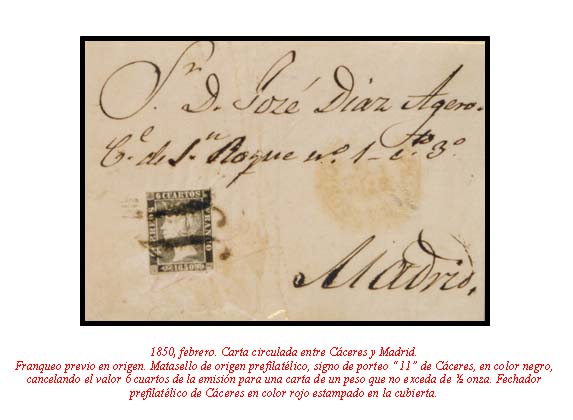 Sr. D. José Diaz Agero.
C.e de S.n Roque nº. 1 - c.to 3º
6 CUARTOS
FRANCO
CORREOS
1850
Madrid.
1850, febrero. Carta circulada entre Cáceres y Madrid.
Franqueo previo en origen. Matasello de origen prefilatélico, signo de porteo “11” de Cáceres, en color negro,
cancelando el valor 6 cuartos de la emisión para una carta de un peso que no exceda de ½ onza. Fechador
prefilatélico de Cáceres en color rojo estampado en la cubierta.